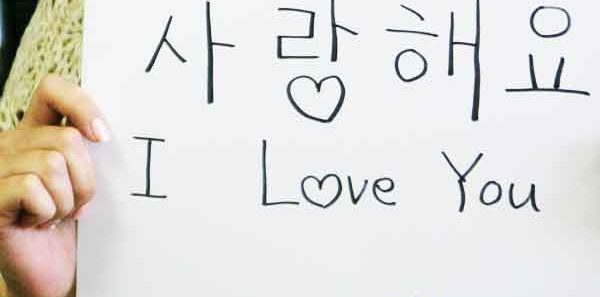 사랑해요
I Love You